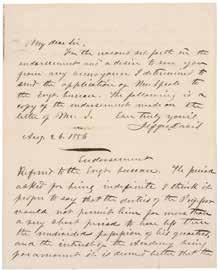 My dear Sir,
For the reasons set forth in the
endorsement and a desire to save you
from any annoyance I determined to
send the application of Mr. Speke to
the Engr. bureau. The following is a
copy of the endorsement made on the
letter of Mr. S.
Very truly yours
Jeffn. Davis
Aug. 26. 1856
Endorsement
Referred to the Engr. bureau. The period
asked for being indefinite I think it
proper to say that the duties of the Professor
would not permit him for more than
a very short period to have left them
the undivided possession of his quarters,
and the interest of the Academy being
paramount it is deemed better that the